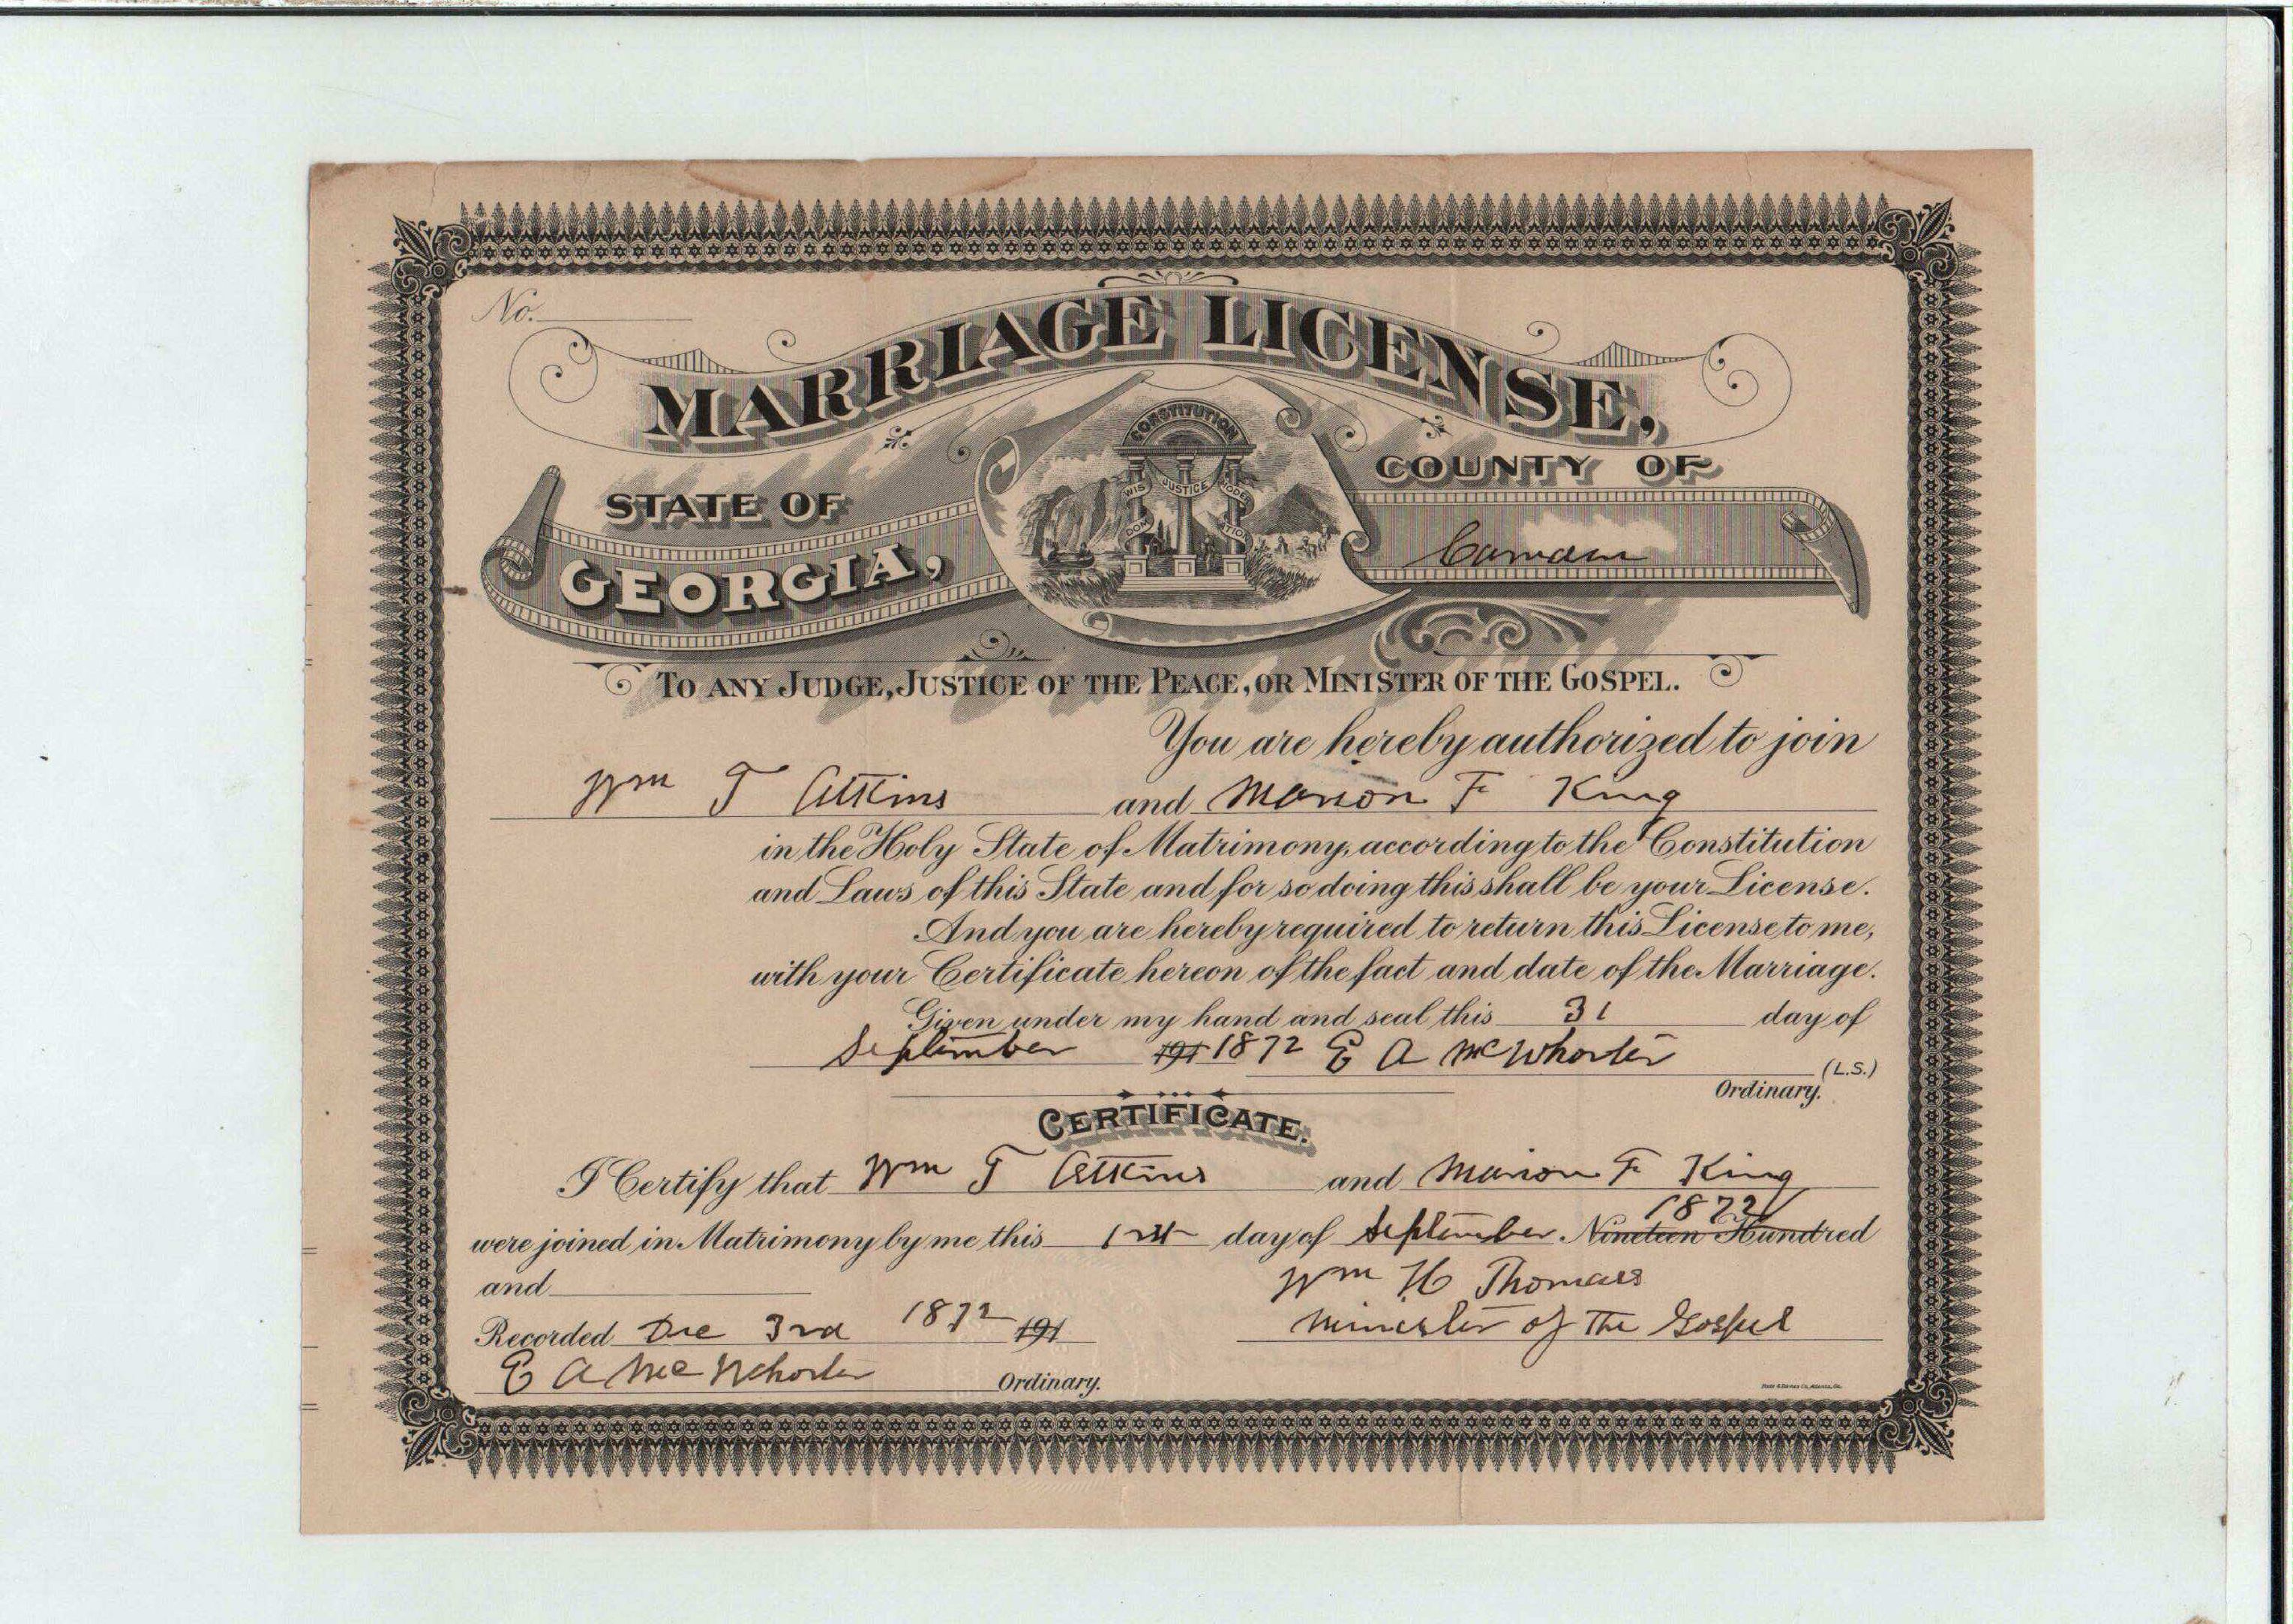 No.
MARRIAGE LICENSE,
CONSTITUTION
WIS DOM JUSTICE MODE TIO
STATE OF
GEORGIA,
COUNTY OF
Camden
TO ANY JUDGE, JUSTICE OF THE PEACE, OR MINISTER OF THE GOSPEL.
You are hereby authorized to join
Wm T Atkins and Marion F King
in the Holy State of Matrimony, according to the Constitution
and Laws of this State and for so doing this shall be your License.
And you are hereby required to return this License to me,
with your Certificate hereon of the fact and date of the Marriage.
Given under my hand and seal this 31 day of
September 191 1872 E A McWhorter (L.S.)
Ordinary.
CERTIFICATE.
I Certify that Wm T Atkins and Marion F King
were joined in Matrimony by me this 1st day of September. Nineteen Hundred 1872
and
Wm H Thomas
Recorded Dec 3rd 1872 191
Minister of The Gospel
E A McWhorter Ordinary.